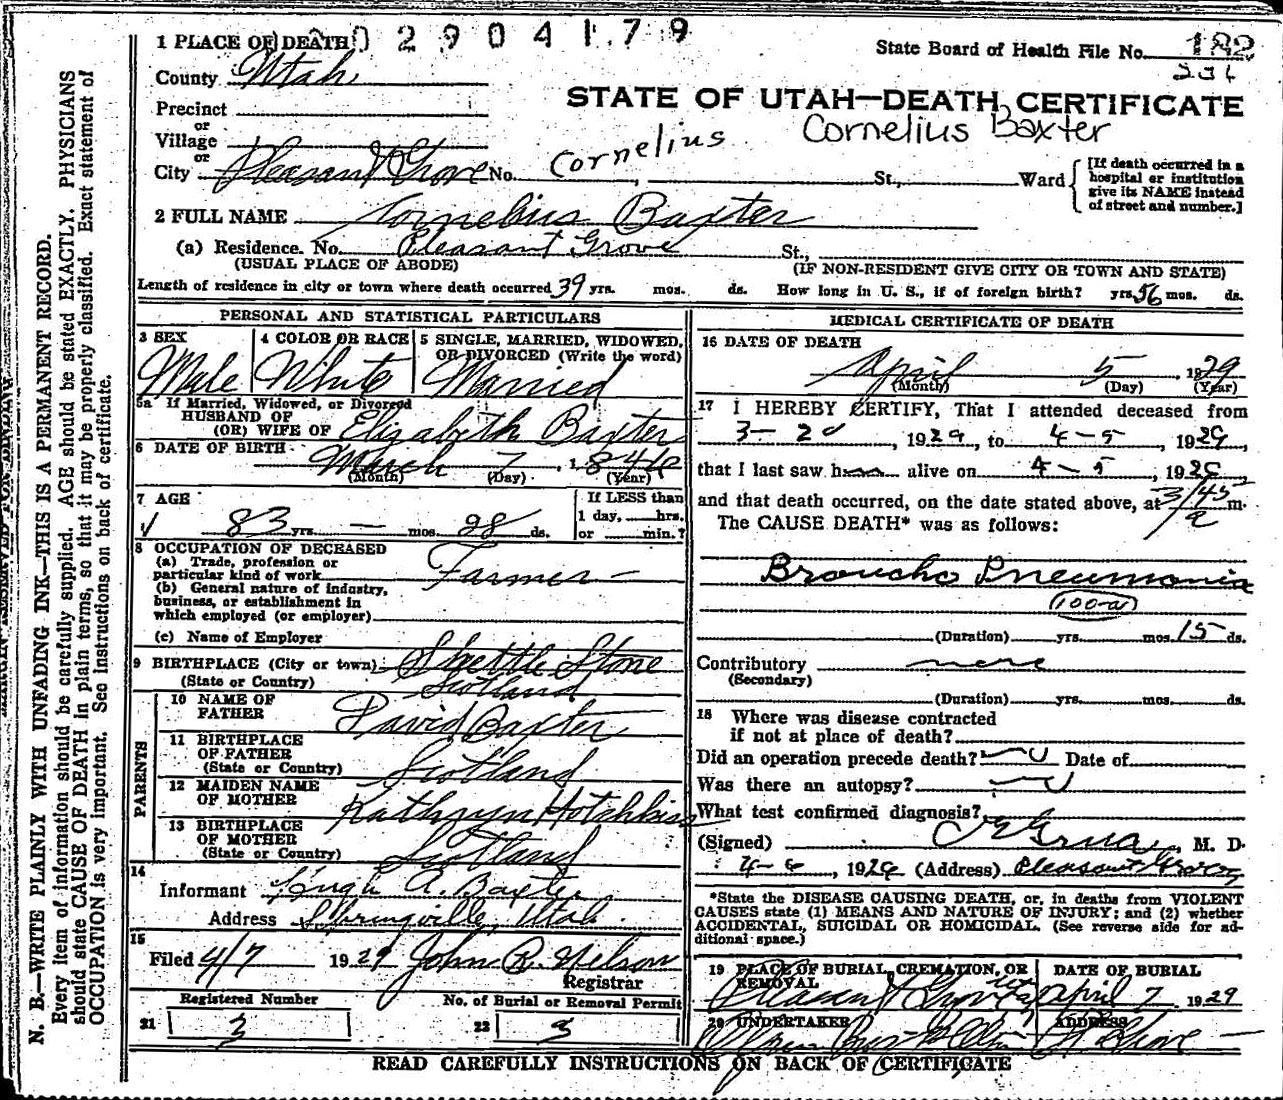 02904179
1 PLACE OF DEATH
State Board of Health File No. 182
County Utah
Precinct
or
Village
or
City Pleasant Grove No. Cornelius St., Ward
STATE OF UTAH—DEATH CERTIFICATE
Cornelius Baxter
[If death occurred in a
hospital or institution
give its NAME instead
of street and number.]
2 FULL NAME Cornelius Baxter
(a) Residence. No. Pleasant Grove St.,
(USUAL PLACE OF ABODE)
(IF NON-RESIDENT GIVE CITY OR TOWN AND STATE)
Length of residence in city or town where death occurred 39 yrs. mos. ds. How long in U. S., if of foreign birth? yrs. 56 mos. ds.
PERSONAL AND STATISTICAL PARTICULARS
3 SEX
Male
4 COLOR OR RACE
White
5 SINGLE, MARRIED, WIDOWED,
OR DIVORCED (Write the word)
Married
5a If Married, Widowed, or Divorced
HUSBAND OF
(OR) WIFE OF Elizabeth Baxter
6 DATE OF BIRTH
March 7
(Month) (Day) (Year)
7 AGE
83 yrs. — mos. 28 ds.
If LESS than
1 day, hrs.
or min.?
8 OCCUPATION OF DECEASED
(a) Trade, profession or
particular kind of work Farmer —
(b) General nature of industry,
business, or establishment in
which employed (or employer)
(c) Name of Employer
9 BIRTHPLACE (City or town) Shettle Stone
(State or Country) Scotland
PARENTS
10 NAME OF
FATHER David Baxter
11 BIRTHPLACE
OF FATHER
(State or Country) Scotland
12 MAIDEN NAME
OF MOTHER Kathryn Hotchkiss
13 BIRTHPLACE
OF MOTHER
(State or Country) Scotland
14
Informant Hugh A. Baxter
Address Springville, Utah.
15
Filed 4/7 1929 John R. Nelson
Registrar
Registered Number
21 3
No. of Burial or Removal Permit
22 3
MEDICAL CERTIFICATE OF DEATH
16 DATE OF DEATH
April 5, 1929
(Month) (Day) (Year)
17 I HEREBY CERTIFY, That I attended deceased from
3-20, 1929, to 4-5 1929,
that I last saw h alive on 4-5, 1929
and that death occurred, on the date stated above, at 3/45 a m.
The CAUSE DEATH* was as follows:
Broncho Pneumonia
100-a
(Duration) yrs. mos. 15 ds.
Contributory none
(Secondary)
(Duration) yrs. mos. ds.
18 Where was disease contracted
if not at place of death?
Did an operation precede death? Date of
Was there an autopsy?
What test confirmed diagnosis?
(Signed) Grua, M. D.
4-6, 1929 (Address) Pleasant Grove
*State the DISEASE CAUSING DEATH, or, in deaths from VIOLENT
CAUSES state (1) MEANS AND NATURE OF INJURY; and (2) whether
ACCIDENTAL, SUICIDAL OR HOMICIDAL. (See reverse side for ad-
ditional space.)
19 PLACE OF BURIAL, CREMATION, OR
REMOVAL
Pleasant Grove
DATE OF BURIAL
April 7 1929
20 UNDERTAKER
ADDRESS
P. Grove —
READ CAREFULLY INSTRUCTIONS ON BACK OF CERTIFICATE
N. B.—WRITE PLAINLY WITH UNFADING INK—THIS IS A PERMANENT RECORD.
Every item of information should be carefully supplied. AGE should be stated EXACTLY. PHYSICIANS
should state CAUSE OF DEATH in plain terms, so that it may be properly classified. Exact statement of
OCCUPATION is very important. See instructions on back of certificate.